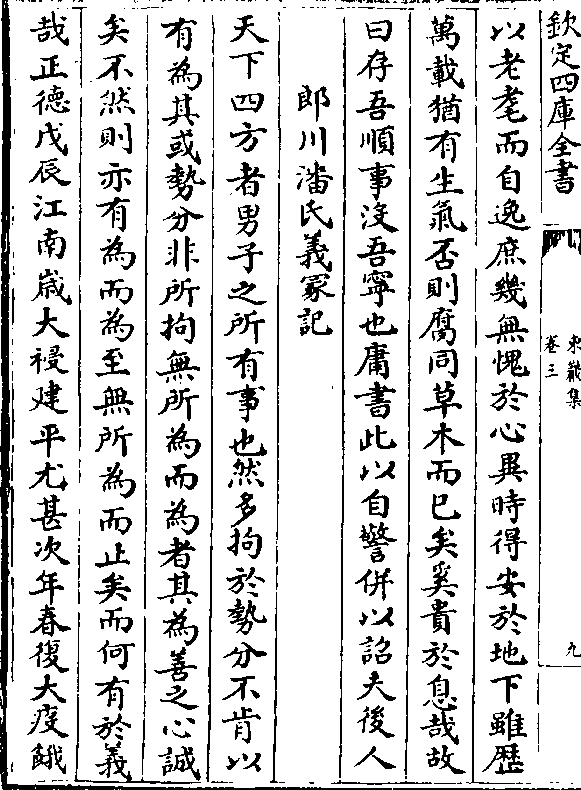 欽定四庫全書
卷三
九
以老耄而自逸庶幾無愧於心異時得安於地下雖歷
萬載猶有生氣否則腐同草木而已矣奚貴於息哉故
曰存吾順事沒吾寧也庸書此以自警併以詔夫後人
郎川潘氏義冢記
天下四方者男子之所有事也然多拘於勢分不肯以
有為其或勢分非所拘無所為而為者其為善之心誠
矣不然則亦有為而為至無所為而止矣而何有於義
哉正德戊辰江南嵗大祲建平尤甚次年春復大疫餓